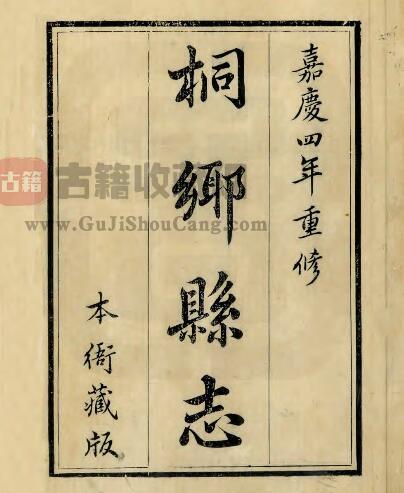 嘉慶四年重修
桐鄉縣志
本衙藏版
古籍 古籍收藏网
www.GuJiShouCang.com